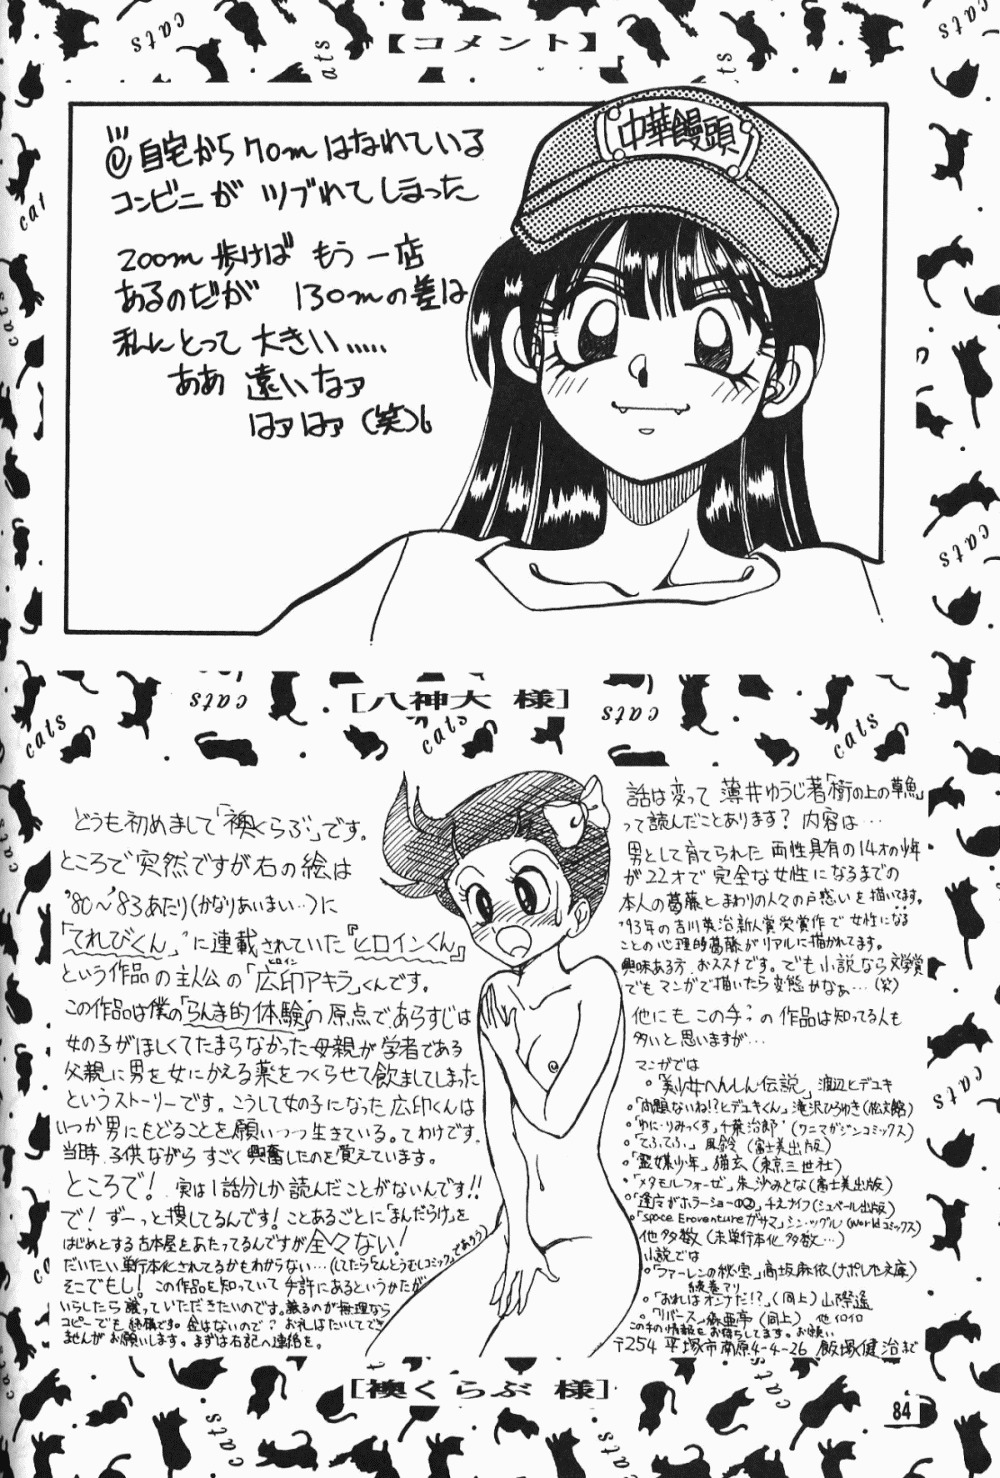 【コメント】
中華饅頭
自宅から70mはなれている
コンビニが ツブれてしまった
200m 歩けば もう一店
あるのだが 130mの差は
私にとって 大きい.....
ああ 遠いなァ
はァはァ(笑)
[八神大 様]
どうも初めまして「襖くらぶ」です。
ところで突然ですが右の絵は
'80〜'83あたり(かなりあいまい…)に
「てれびくん」に連載されていた『ヒロインくん』
という作品の主人公の「広印アキラ」くんです。
ヒロイン
この作品は僕の「らんま的体験」の原点で、あらすじは
女の子がほしくてたまらなかった母親が学者である
父親に男を女にかえる薬をつくらせて飲ましてしまった
というストーリーです。こうして女の子になった広印くんは
いつか男にもどることを願いつつ生きている。てわけです。
当時、子供ながらすごく興奮したのを覚えています。
ところで! 実は1話分しか読んだことがないんです!!
で! ずーっと捜してるんです! ことあるごとに「まんだらけ」を
はじめとする古本屋をあたってるんですが全々ない!
だいたい単行本化されてるかもわからない…(してたら「てんとうむしコミック」であろう)
そこでもし! この作品を知っていて手許にあるというかたが
いらしたら譲っていただきたいのです。譲るのが無理なら
コピーでも結構です。金はないので? お礼はたいしてでき
ませんがお願いします。まずは右記へ連絡を。
話は変って 薄井ゆうじ著「樹の上の草魚」
って読んだことあります? 内容は…
男として育てられた 両性具有の14才の少年
が22才で 完全な女性になるまでの
本人の葛藤とまわりの人々の戸惑いを描いてます。
'93年の吉川英治新人賞受賞作で 女性になる
ことの心理的葛藤がリアルに描かれてます。
興味ある方、おススメです。でも小説なら文学賞
でもマンガで描いたら変態かなぁ…(笑)
他にもこの手の作品は知ってる人も
多いと思いますが…
マンガでは
。「美少女へんしん伝説」渡辺ヒデユキ
。「問題ないね!?ヒデユキくん」滝沢ひろゆき(松文館)
。「ゆに・りみっくす」千葉治郎(ワニマガジンコミックス)
。「てふてふ」風鈴(富士美出版)
。「霊媒少年」猫玄(東京三世社)
。「メタモルフォーゼ」朱沙みとな(富士美出版)
。「逢方がホラーショーの②」チえナイフ(シュベール出版)
。「Space Eroventureガサマ」シン・ツグル(Worldコミックス)
他多数(未単行本化多数…)
小説では
。「ファーレンの秘宝」高坂麻依(ナポレオン文庫)
続巻アリ
。「おれはオンナだ!?」(同上)山際遙
。「リバース」森亜亭(同上) 他イロイロ
この手の情報をお待ちしてます。お願い
〒254 平塚市南原4-4-26 飯塚健治まで
[襖くらぶ 様]
84
cats